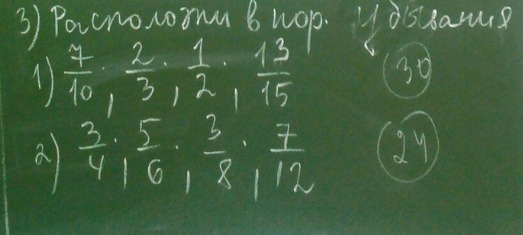 3) Расположи в пор. убывания
1) 7/10 ; 2/3 ; 1/2 ; 13/15 (30)
2) 3/4 ; 5/6 ; 3/8 ; 7/12 (24)